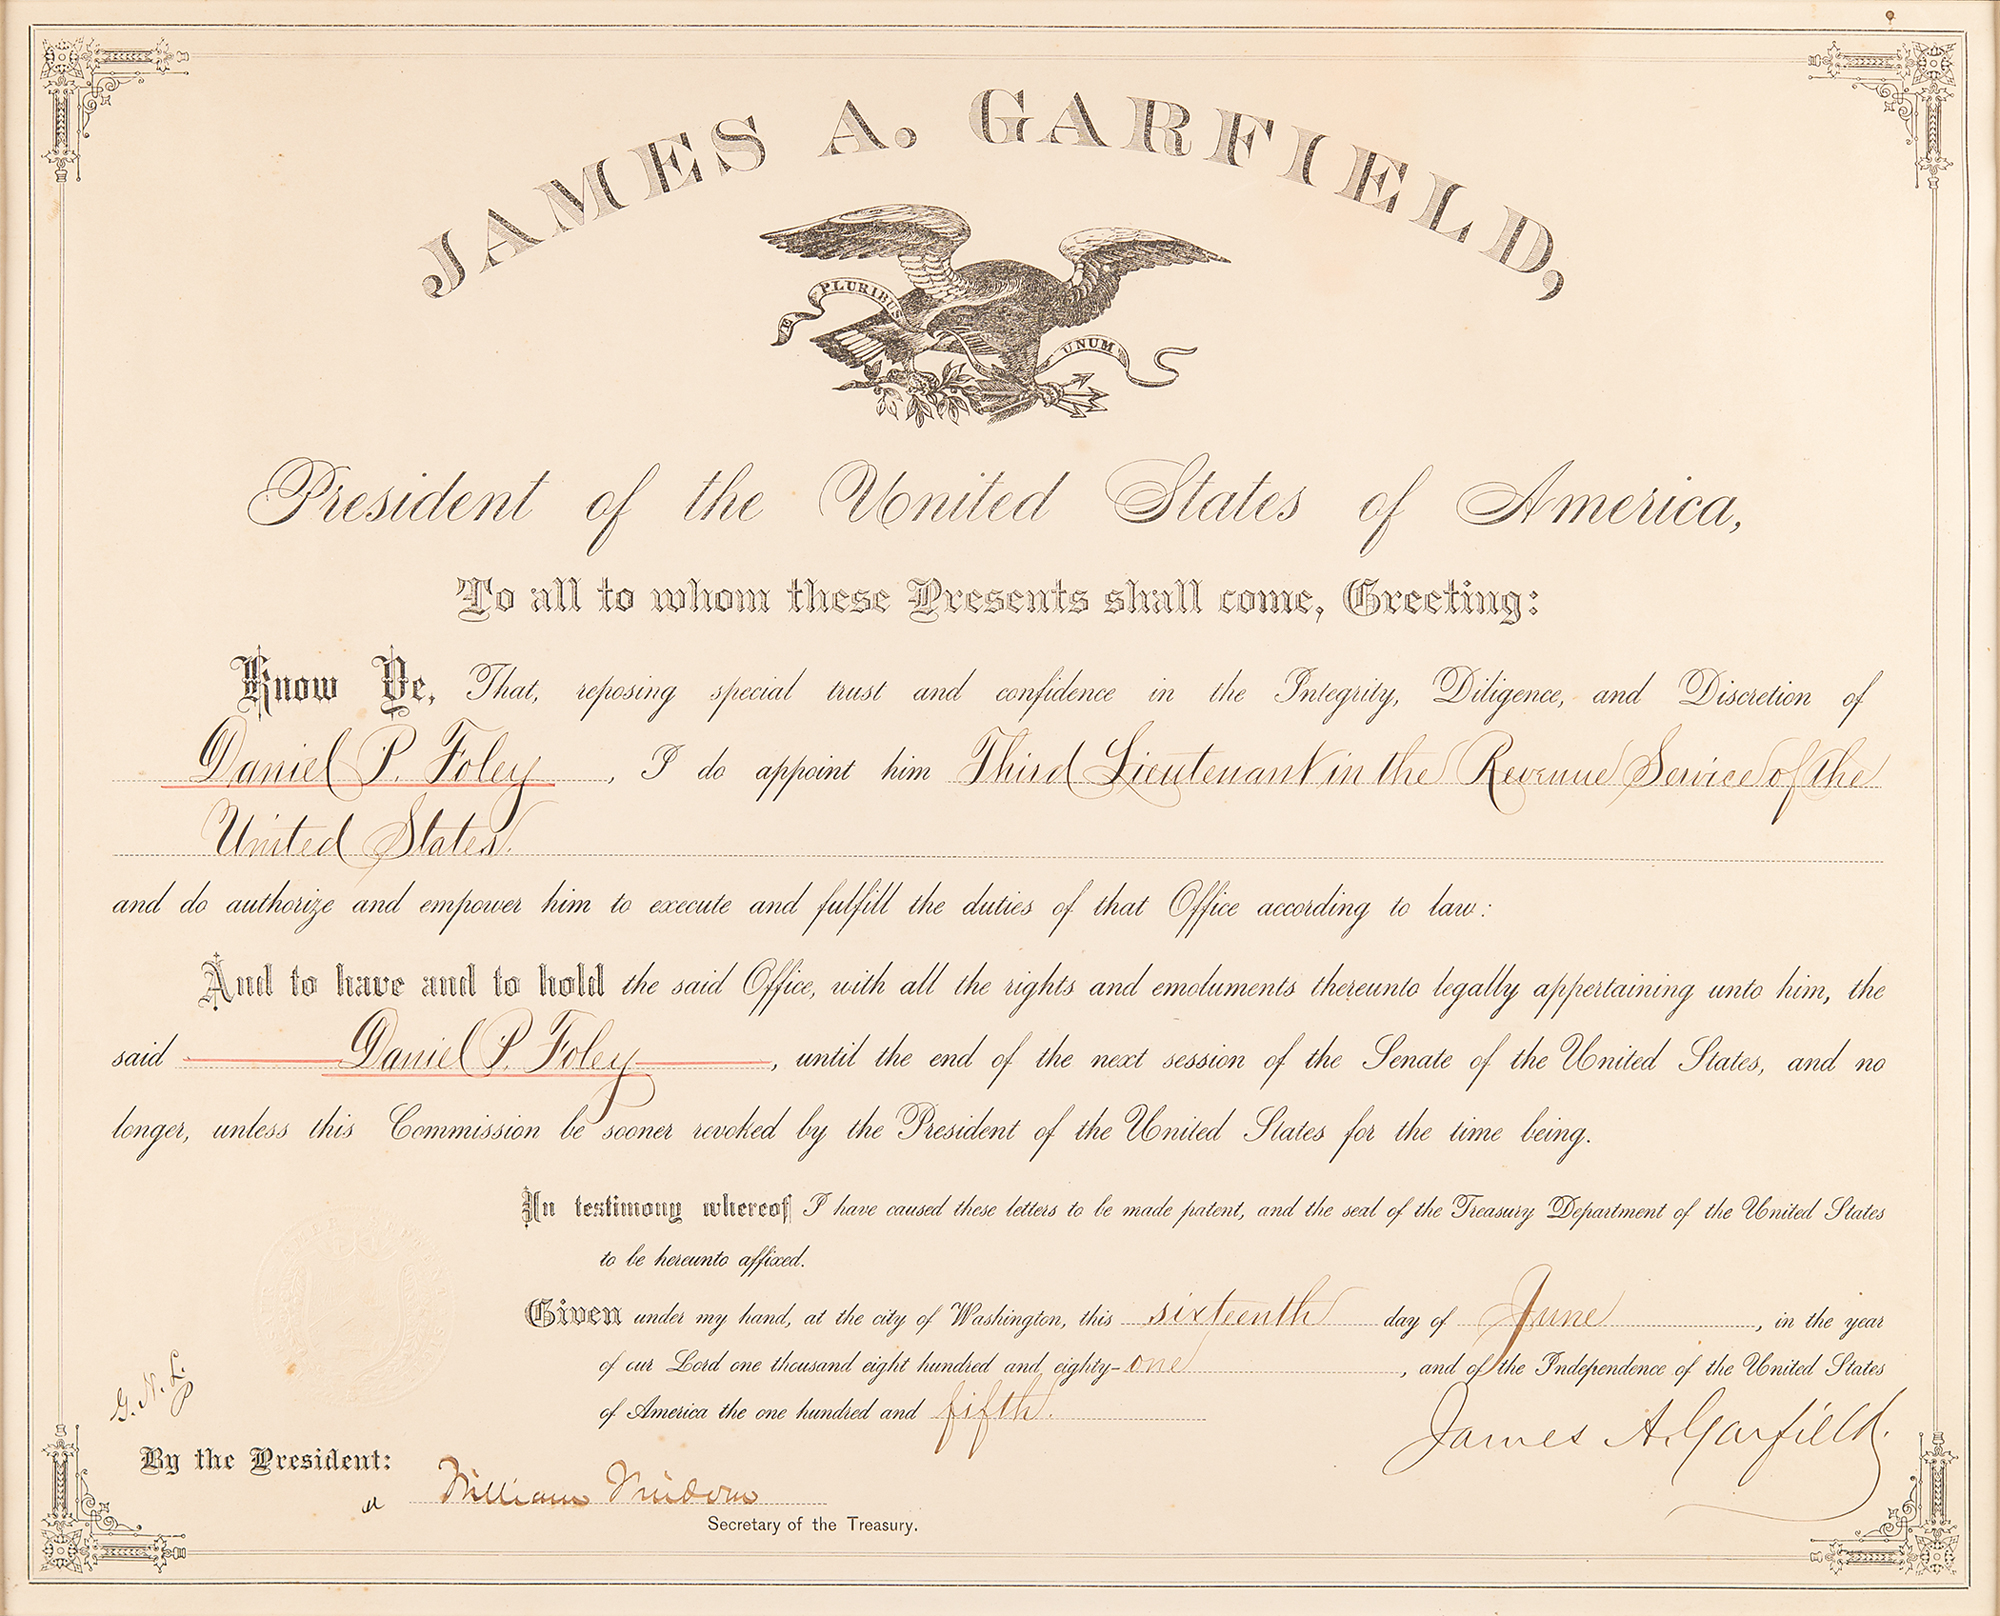 JAMES A. GARFIELD,
E PLURIBUS UNUM
President of the United States of America,
To all to whom these Presents shall come, Greeting:
Know Ye, That, reposing special trust and confidence in the Integrity, Diligence, and Discretion of
Daniel P. Foley, I do appoint him Third Lieutenant in the Revenue Service of the
United States.
and do authorize and empower him to execute and fulfill the duties of that Office according to law:
And to have and to hold the said Office, with all the rights and emoluments thereunto legally appertaining unto him, the
said Daniel P. Foley, until the end of the next session of the Senate of the United States, and no
longer, unless this Commission be sooner revoked by the President of the United States for the time being.
In testimony whereof I have caused these letters to be made patent, and the seal of the Treasury Department of the United States
to be hereunto affixed.
Given under my hand, at the city of Washington, this sixteenth day of June, in the year
of our Lord one thousand eight hundred and eighty-one, and of the Independence of the United States
of America the one hundred and fifth.
G. N. L.
James A. Garfield.
By the President:
William Windom
Secretary of the Treasury.